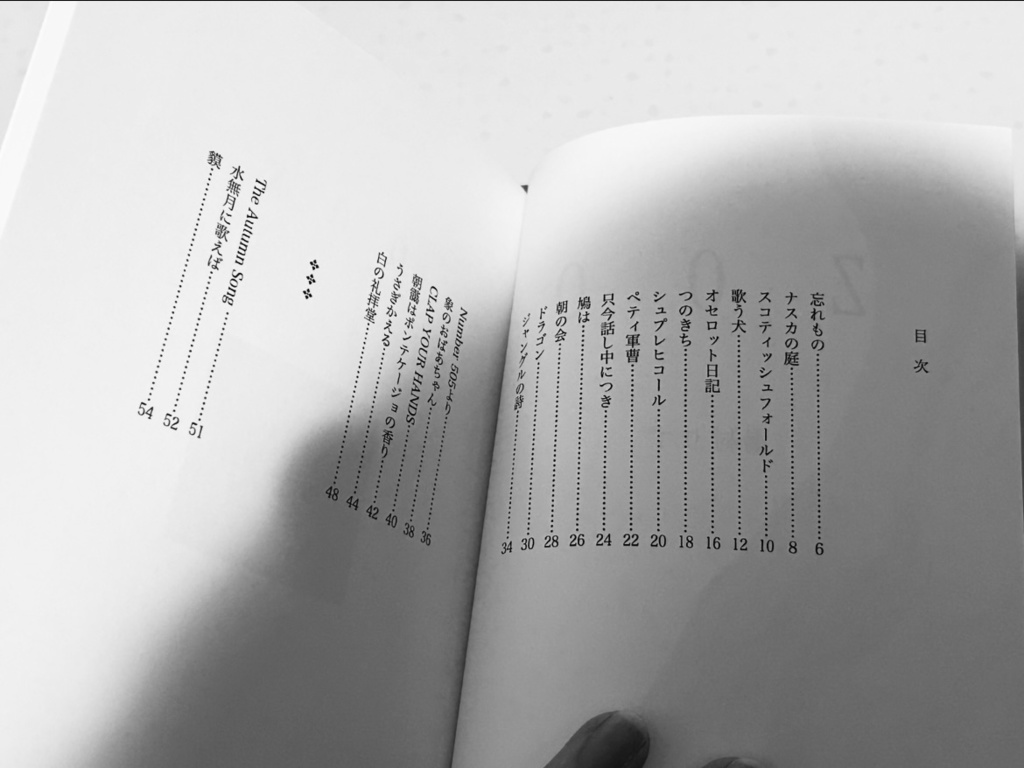 目次
忘れもの……6
ナスカの庭……8
スコティッシュフォールド……10
歌う犬……12
オセロット日記……16
つのきち……18
シュプレヒコール……20
ペティ軍曹……22
只今話し中につき……24
鳩は……26
朝の会……28
ドラゴン……30
ジャングルの詩……34
Number 505より……36
象のおばあちゃん……38
CLAP YOUR HANDS……40
朝靄はポンテケージョの香り……42
うさぎかえる……44
白の礼拝堂……48
The Autumn Song……51
水無月に歌えば……52
貘……54